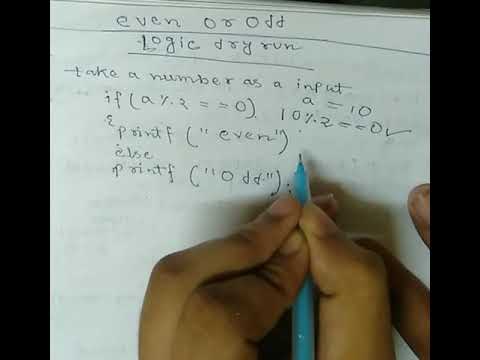 even or Odd
Logic dry run
take a number as a input
if (a%2 == 0)
a = 10
10%2 == 0 ✓
{ printf ("even")
else
printf ("Odd");